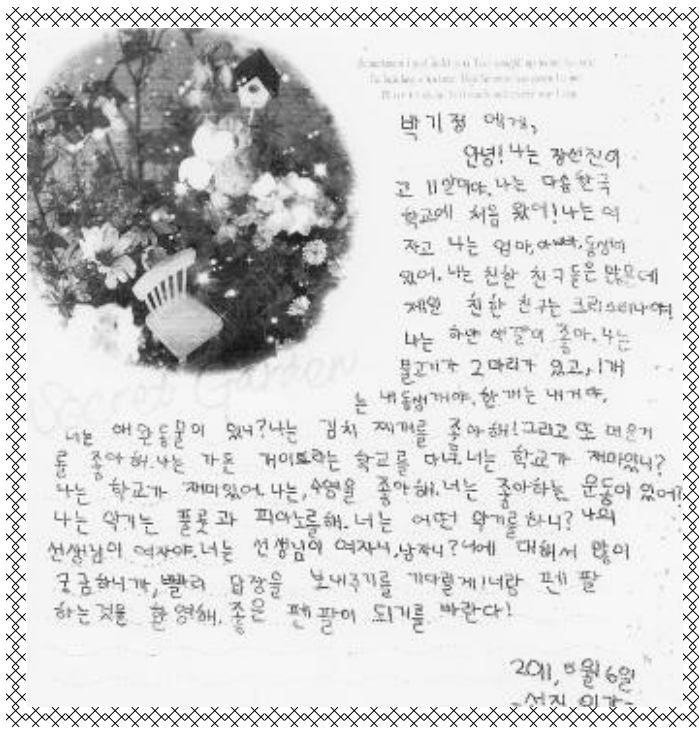 박기정 에게,
안녕! 나는 장선진이
고 11살이야. 나는 다솜한국
학교에 처음 왔어! 나는 여
자고 나는 엄마, 아빠, 동생이
있어. 나는 친한 친구들은 많은데
제일 친한 친구는 크리스티나야!
나는 하얀 색깔이 좋아. 나는
물고기가 2마리가 있고, 1개
는 내동생거야. 한개는 내거야.
너는 애완동물이 있니? 나는 김치 찌개를 좋아해! 그리고 또 매운거
를 좋아해. 나는 가튼 라는 학교를 다녀. 너는 학교가 재미있니?
나는 학교가 재미있어. 나는, 수영을 좋아해. 너는 좋아하는 운동이 있어?
나는 악기는 플룻과 피아노를해. 너는 어떤 악기를하니? 나의
선생님이 여자야. 너는 선생님이 여자니, 남자니? 너에 대해서 많이
궁금하니까, 빨리 답장을 보내주기를 기다릴게! 너랑 펜 팔
하는것을 환영해. 좋은 펜팔이 되기를 바란다!
2011, 6일
Secret Garden